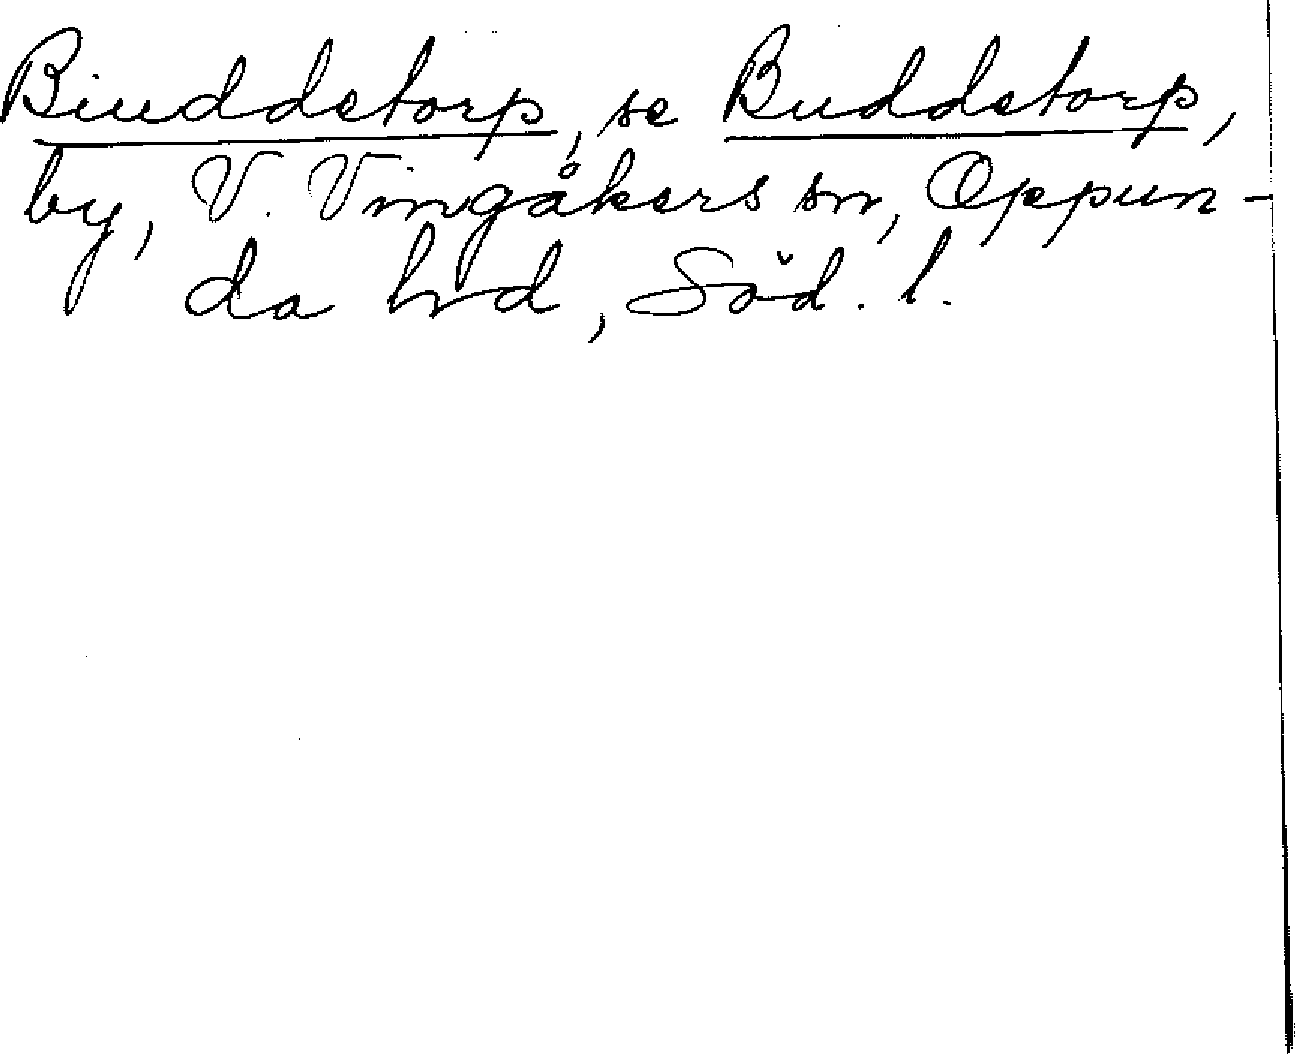 Biuddetorp, se Buddetorp,
by, V. Vingåkers sn, Oppun-
da hrd, Söd. l.